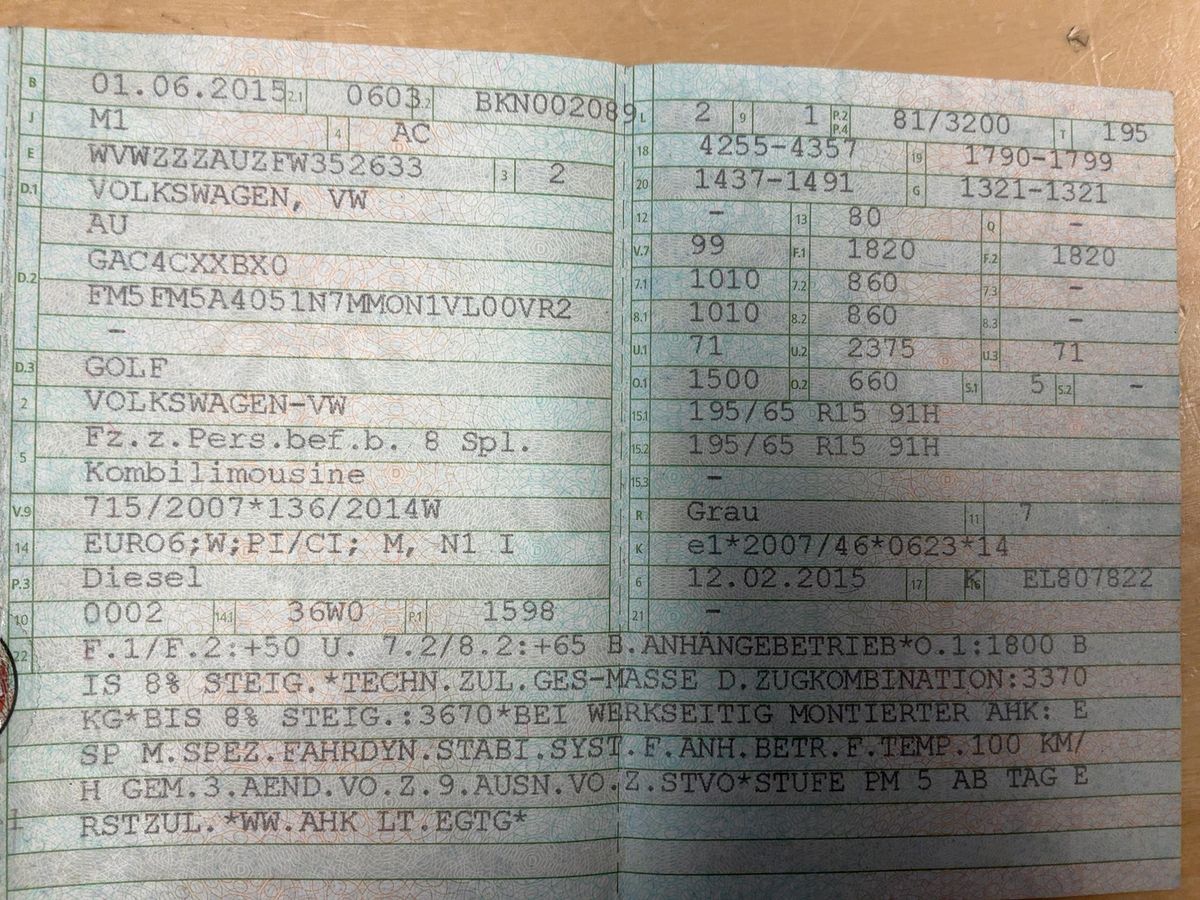 B 01.06.2015 2.1 0603 2.2 BKN002089
J M1 4 AC
E WVWZZZAUZFW352633 3 2
D.1 VOLKSWAGEN, VW
AU
D.2 GAC4CXXBX0
FM5FM5A4051N7MMON1VL00VR2
–
D.3 GOLF
2 VOLKSWAGEN-VW
5 Fz.z.Pers.bef.b. 8 Spl.
Kombilimousine
V.9 715/2007*136/2014W
14 EURO6;W;PI/CI; M, N1 I
P.3 Diesel
10 0002 14.1 36W0 P.1 1598
L 2 9 1 P.2 P.4 81/3200 T 195
18 4255-4357 19 1790-1799
20 1437-1491 G 1321-1321
12 – 13 80 Q –
V.7 99 F.1 1820 F.2 1820
7.1 1010 7.2 860 7.3 –
8.1 1010 8.2 860 8.3 –
U.1 71 U.2 2375 U.3 71
O.1 1500 O.2 660 S.1 5 S.2 –
15.1 195/65 R15 91H
15.2 195/65 R15 91H
15.3 –
R Grau 11 7
K e1*2007/46*0623*14
6 12.02.2015 17 K 16 EL807822
21 –
22 F.1/F.2:+50 U. 7.2/8.2:+65 B.ANHÄNGEBETRIEB*O.1:1800 B
IS 8% STEIG.*TECHN.ZUL.GES-MASSE D.ZUGKOMBINATION:3370
KG*BIS 8% STEIG.:3670*BEI WERKSEITIG MONTIERTER AHK: E
SP M.SPEZ.FAHRDYN.STABI.SYST.F.ANH.BETR.F.TEMP.100 KM/
H GEM.3.AEND.VO.Z.9.AUSN.VO.Z.STVO*STUFE PM 5 AB TAG E
RSTZUL.*WW.AHK LT.EGTG*